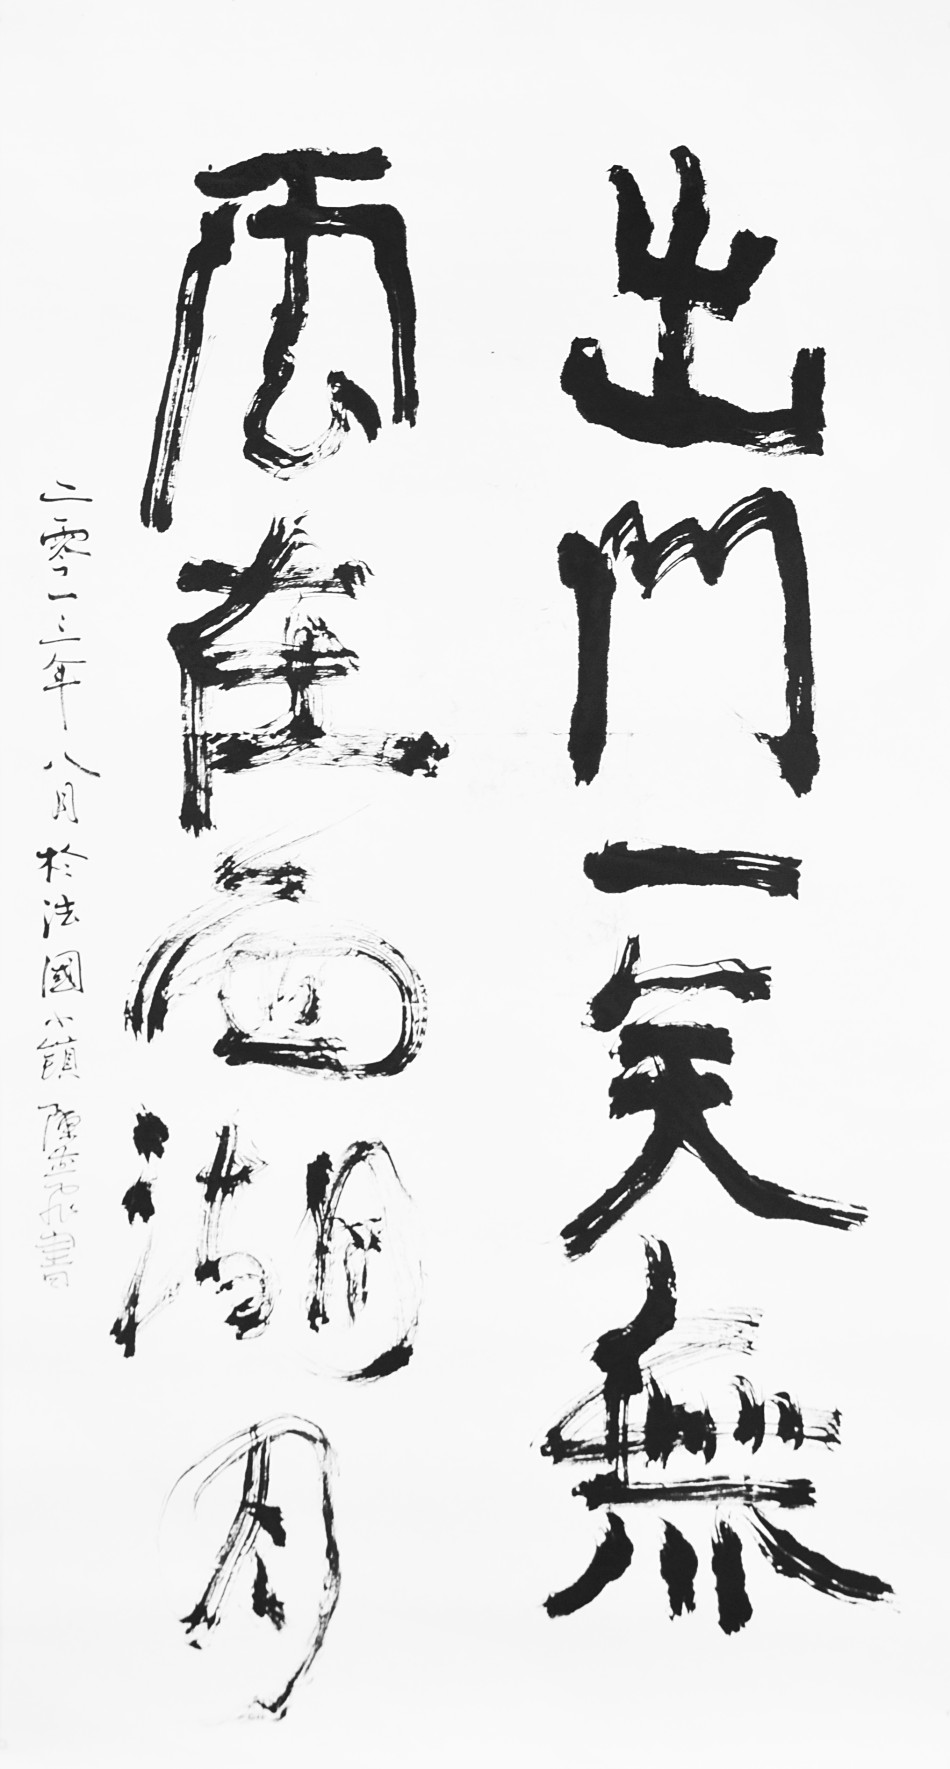 出門一笑無
雲在西湖月
二零一三年八月於法國小鎮 陳 飛書